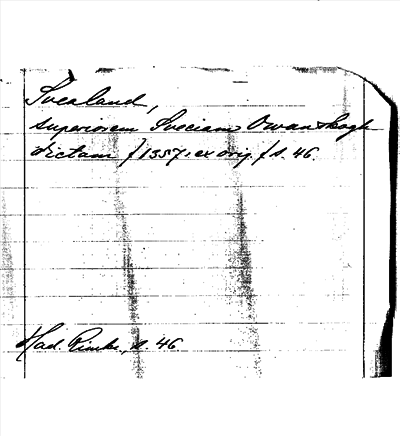 Svealand,
superiorem Sueciam Owanskogh
dictam /1357, ex orig./ s. 46.
Had. Rimbo, s. 46